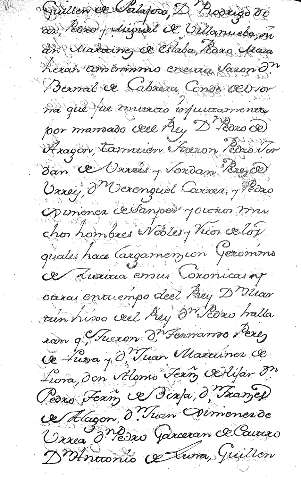 Guillen de Palafox, D. Rodrigo Di
az, Pedro y Miguel de Villanueba,
an Martinez de Eslaba, Pedro Maza
 en
Bernal de Cabrera, Conde de
na que fue muerto injustamente
por mandado del Rey Dn Pedro de
Aragon, tamuien fueron Pedro Jor
dan de Urries y Jordan Perez de
Urries, Dn Verenguel Carroz, y Pedro
Ximenez de Sanper y otros mu
chos hombres Nobles y hijos de
quales hace larga mencion Geronimo
de Zurita en sus Coronicas y
otras en tiempo del Rey Dn Mar
tin hijo del Rey Dn Pedro halla
ran q. fueron Dn Fernando Perez
de Luna y Dn Juan Martinez de
Luna, Don Alonso Fern de Hijar Dn
Pedro Fern de Dn
de Alagon, Dn Juan Ximenez de
Urrea Dn Pedro Garceran de
Dn Antonio de Luna, Guillen